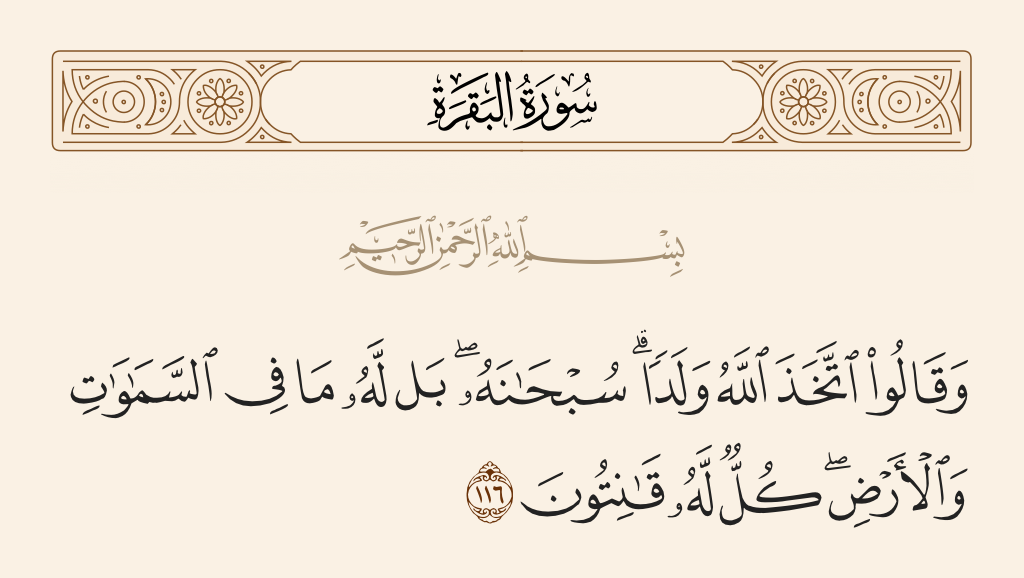 سُورَةُ البَقَرَةِ
بِسْمِ ٱللَّهِ ٱلرَّحْمَٰنِ ٱلرَّحِيمِ
وَقَالُوا۟ ٱتَّخَذَ ٱللَّهُ وَلَدًا ۗ سُبْحَـٰنَهُۥ ۖ بَل لَّهُۥ مَا فِى ٱلسَّمَـٰوَٰتِ
وَٱلْأَرْضِ ۖ كُلٌّ لَّهُۥ قَـٰنِتُونَ ١١٦